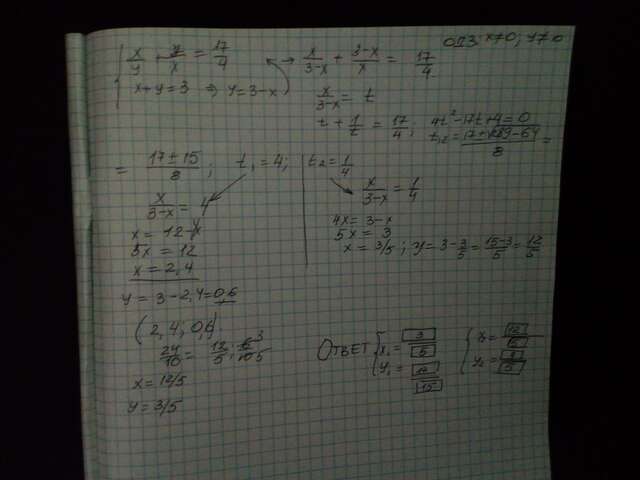 ОДЗ: x≠0; y≠0
{ x/y + y/x = 17/4 → x/(3-x) + (3-x)/x = 17/4
x+y=3 ⇒ y=3-x
x/(3-x) = t
t + 1/t = 17/4; 4t²-17t+4=0
t₁,₂ = (17±√289-64)/8 =
= (17±15)/8; t₁=4; t₂=1/4
x/(3-x) = 4
x = 12-4x
5x = 12
x = 2,4
y = 3-2,4=0,6
(2,4; 0,6)
24/10 = 12/5; 6/10 3/5
x = 12/5
y = 3/5
x/(3-x) = 1/4
4x = 3-x
5x = 3
x = 3/5; y = 3-3/5 = (15-3)/5 = 12/5
ОТВЕТ { x₁ = 3/5
y₁ = 12/15
{ x₂ = 12/5
y₂ = 3/5